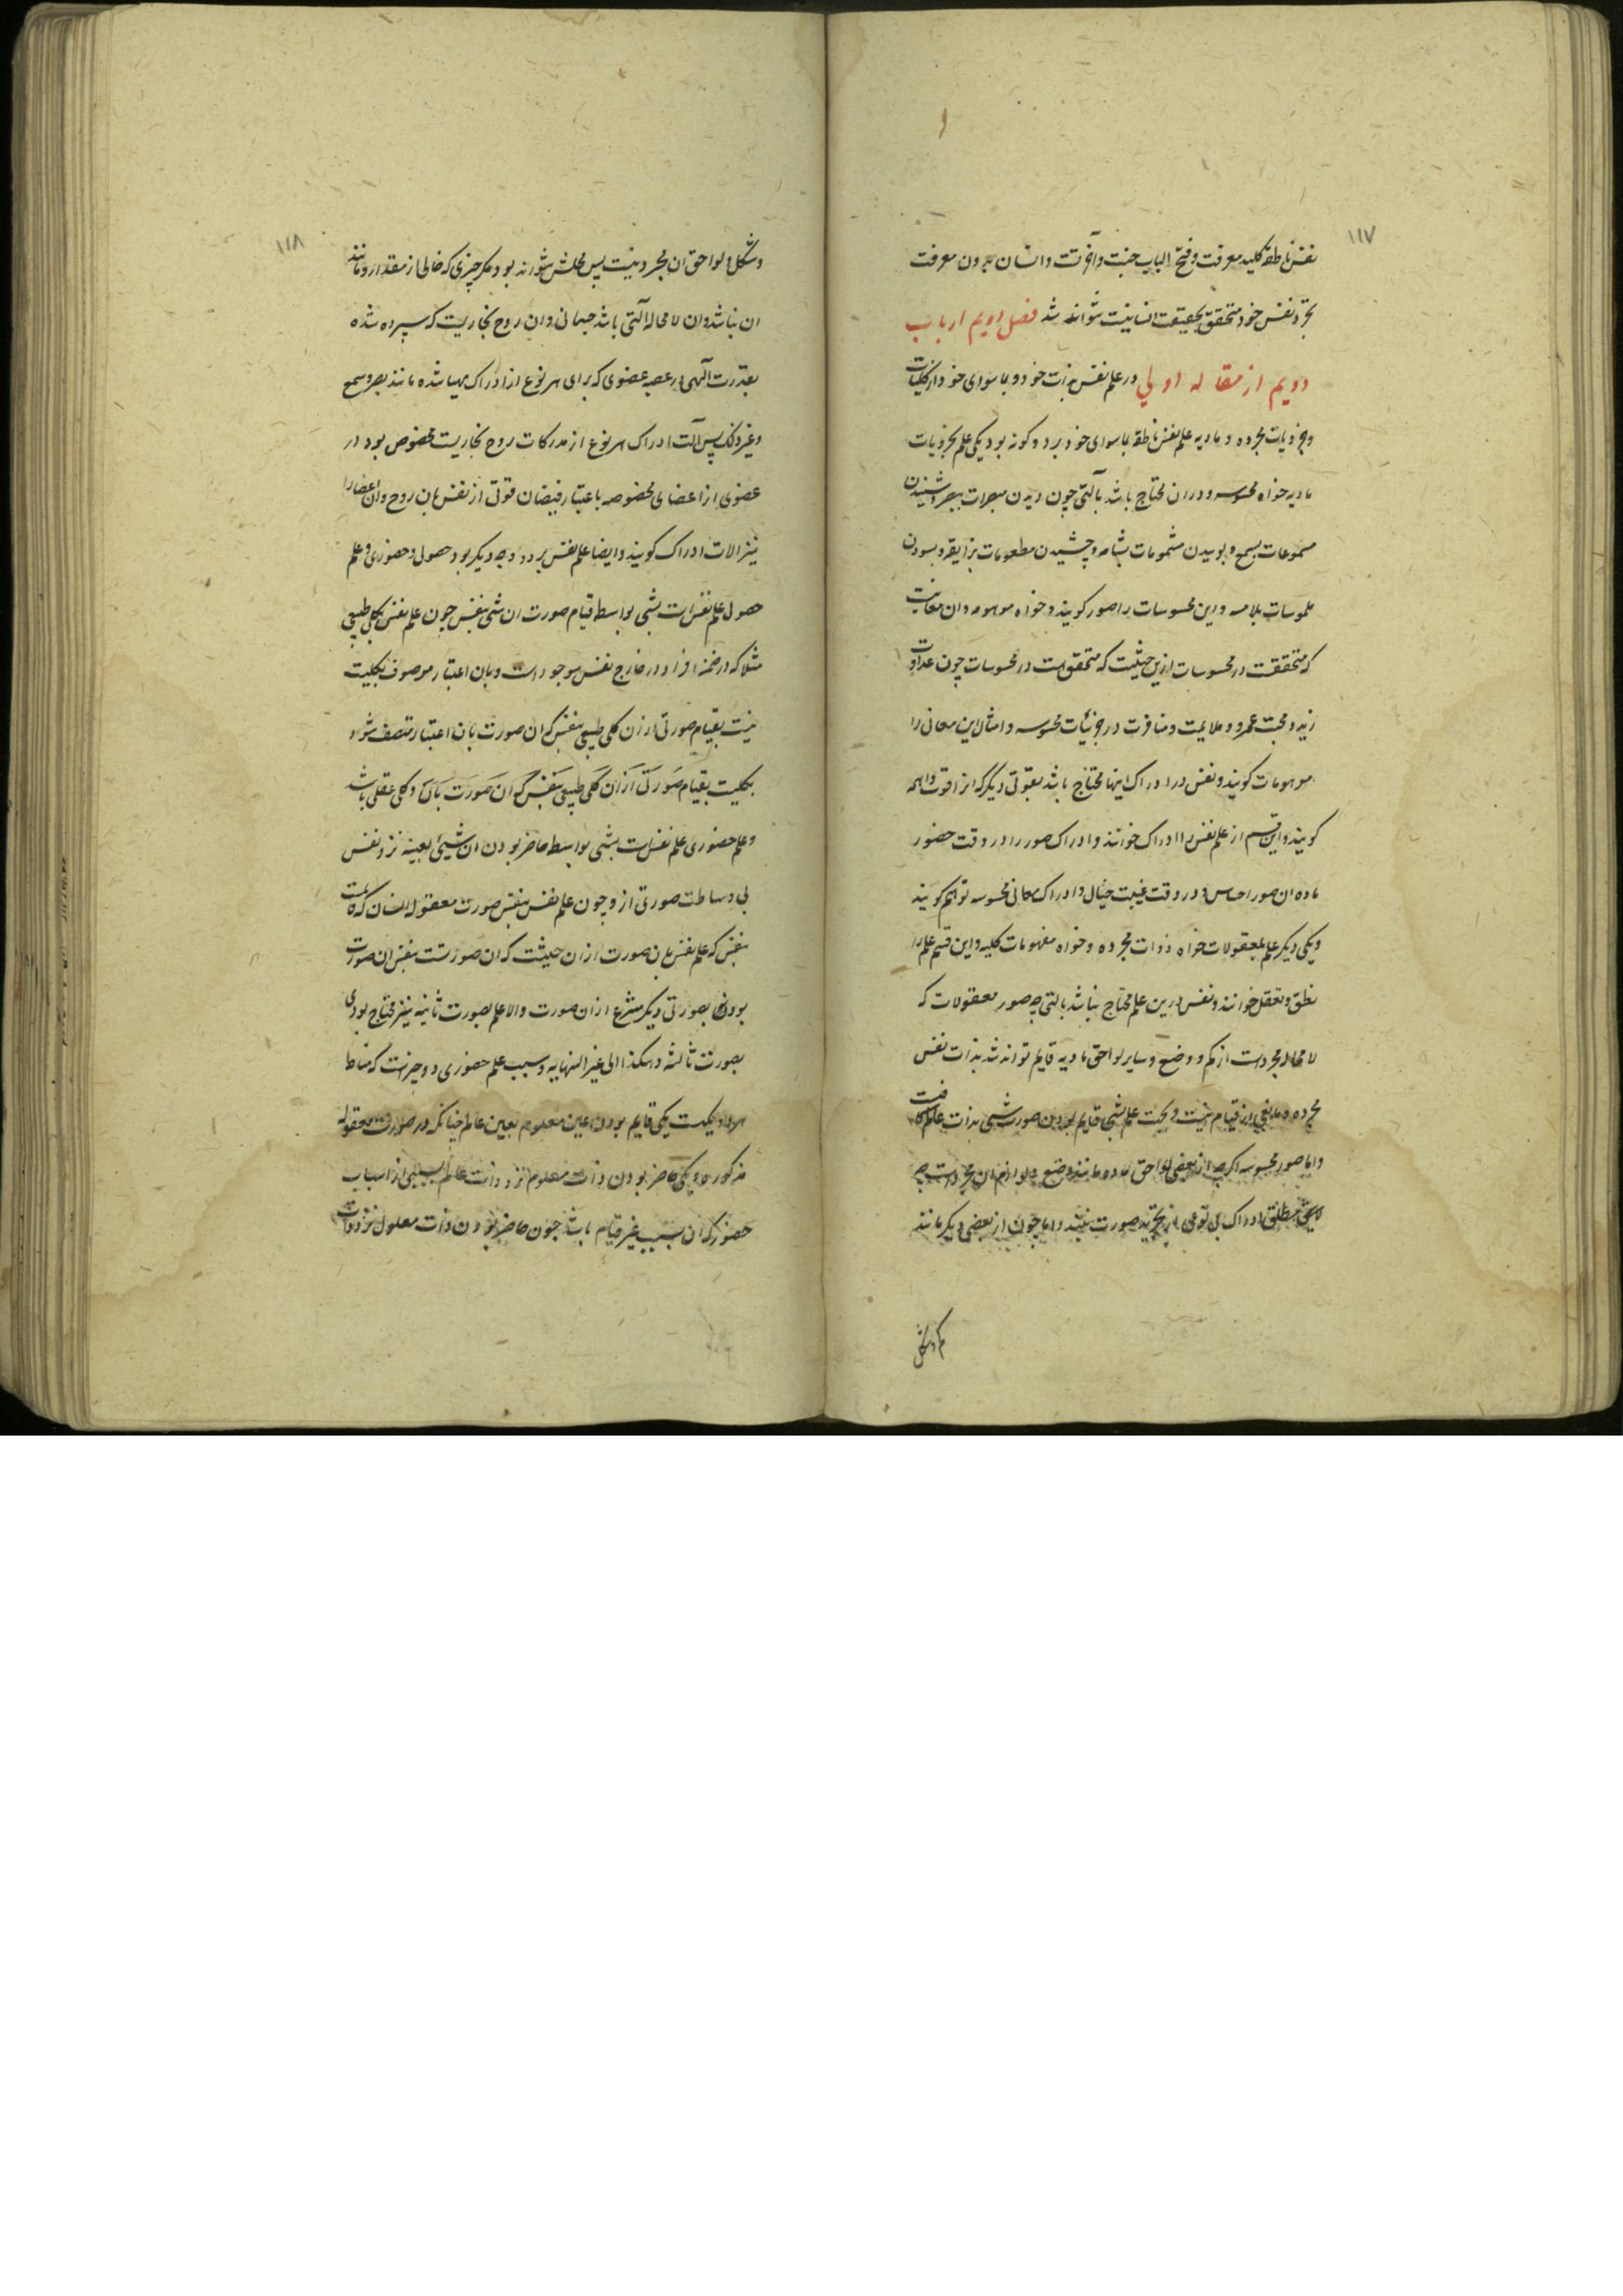 ۱۱۷
نفس ناطقه کلید معرفت و فتح الباب جنت و آخرتست و انسان بیرون معرفت
تجرد نفس خود متحقق بحقیقت انسانیت نتواند شد فصل دویم از باب
دویم از مقاله اولی در علم نفس بذات خود و بما سوای خود از کلیات
و جزویات مجرده و مادیه علم نفس ناطقه بما سوای خود بر دو گونه بود یکی علم بجزویات
مادیه خواه محسوسه و دران محتاج باشد بآلتی چون دیدن مبصرات ببصر و شنیدن
مسموعات بسمع و بوییدن مشمومات بشامه و چشیدن مطعومات بذایقه و بسودن
ملموسات بلامسه و این محسوسات را صور گویند و خواه موهومه و ان معانیست
که متحققست در محسوسات ازین حیثیت که متحقق است در محسوسات چون عداوت
زید و محبت عمرو و ملایمت و منافرت در جزئیات محسوسه و امثال این معانی را
موهومات گویند و نفس در ادراک اینها محتاج باشد بقوتی دیگر که انرا قوت واهمه
گویند و این قسم از علم نفس را ادراک خوانند و ادراک صور را در وقت حضور
ماده ان صور احساس و در وقت غیبت خیال و ادراک معانی محسوسه توهم گویند
و یکی دیگر علم بمعقولات خواه ذوات مجرده و خواه مفهومات کلیه و این قسم علم را
نطق و تعقل خوانند و نفس درین علم محتاج نباشد بالتی چه صور معقولات که
لامحاله مجردست از کم و وضع و سایر لواحق مادیه قایم تواند شد بذات نفس
مجرده و مانعی از قیام نیست و بحت علم بشی قایم بودن صورت شی بذات عالم کافیست
و اما صور محسوسه اگرچه از بعضی لواحق ماده مانند وضع و لوازم ان مجردست چه
لا یحق مطلق ادراک بی نوعی از تجرید صورت نبندد و اما چون از بعضی دیگر مانند
کم و شکل
۱۱۸
و شکل و لواحق ان مجرد نیست پس محلش نتواند بود مگر چیزی که خالی از مقدار و مانند
ان نباشد و ان لامحاله آلتی باشد جسمانی و ان روح بخاریست که سپرده شده
بقدرت الهی در عصبه عضوی که برای هر نوع از ادراک مهیا شده مانند بصر و سمع
و غیر ذلک پس آلت ادراک هر نوع از مدرکات روح بخاریست مخصوص بود در
عضوی از اعضای مخصوصه باعتبار فیضان قوتی از نفس بان روح و ان اعضا را
نیز الات ادراک گویند و ایضا علم نفس بر دو وجه دیگر بود حصولی و حضوری و علم
حصولی علم نفس است بشی بواسطه قیام صورت ان شی بنفس چون علم نفس بکلی طبیعی
مثلا که در ضمن افراد در خارج نفس موجود است و بان اعتبار موصوف بکلیت
نیست بقیام صورتی از ان کلی طبیعی بنفس که ان صورت بان اعتبار متصف شود
بکلیت بقیام صورتی از ان کلی طبیعی بنفس که ان صورت بان و کلی عقلی باشد
و علم حضوری علم نفس است بشی بواسطه حاضر بودن ان شیئ بعینه نزد نفس
بی وساطت صورتی از و چون علم نفس بنفس صورت معقوله انسان که قایمست
بنفس که علم نفس بان صورت از ان حیثیت که ان صورتست بنفس ان صورت
بود نه بصورتی دیگر منتزع از ان صورت والا علم بصورت ثانیه نیز محتاج بودی
بصورت ثالثه و هکذا الی غیر النهایه و سبب علم حضوری دو چیزست که مناط
هر دو یکیست یکی قایم بودن عین معلوم بعین عالم چنانکه در صورت معقوله
مذکوره و یکی حاضر بودن ذات معلوم نزد ذات عالم بسببی از اسباب
حضور که ان سبب غیر قیام باشد چون حاضر بودن ذات معلول نزد ذات